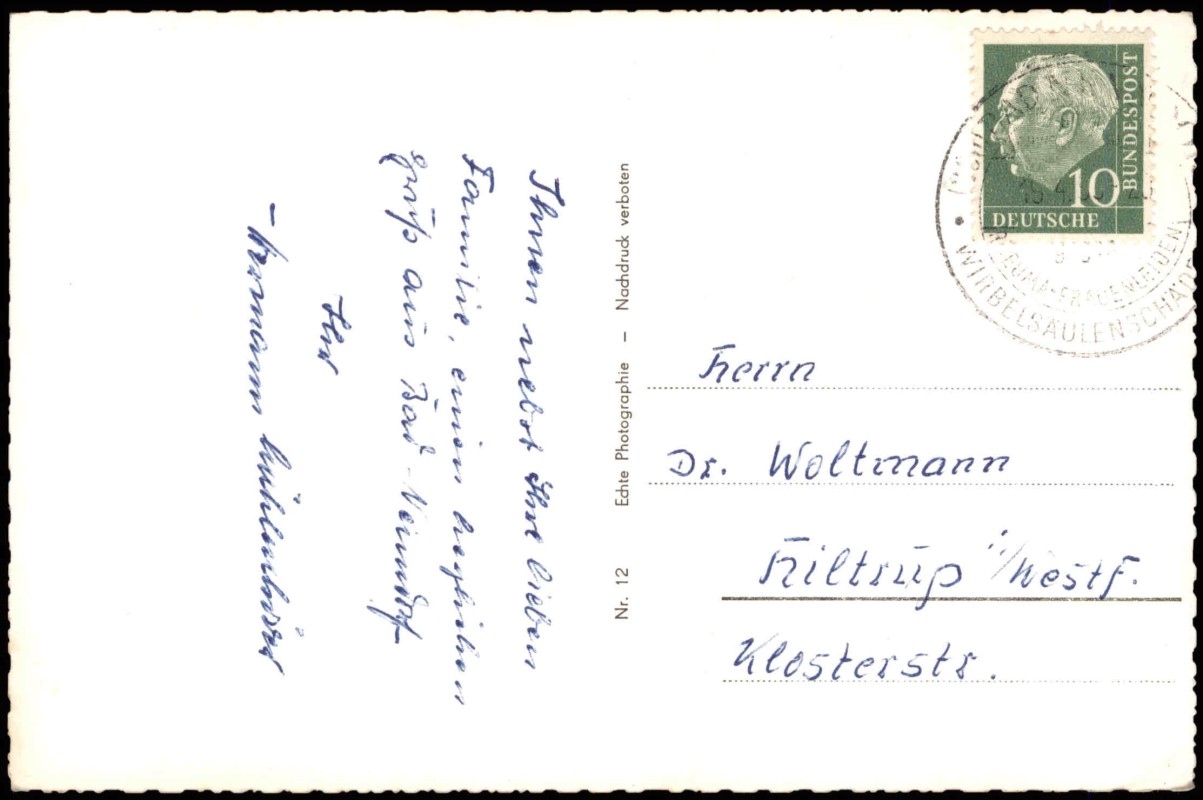 Ihnen nebst Ihre lieben
Familie, einen herzlichen
Gruß aus Bad-Nenndorf
Ihr
Hermann
Nr. 12 Echte Photographie – Nachdruck verboten
DEUTSCHE
BUNDESPOST
10
BAD NENNDORF
RHEUMA-FRAUENLEIDEN
WIRBELSÄULENSCHÄD
Herrn
Dr. Woltmann
Hiltrup i/Westf.
Klosterstr.